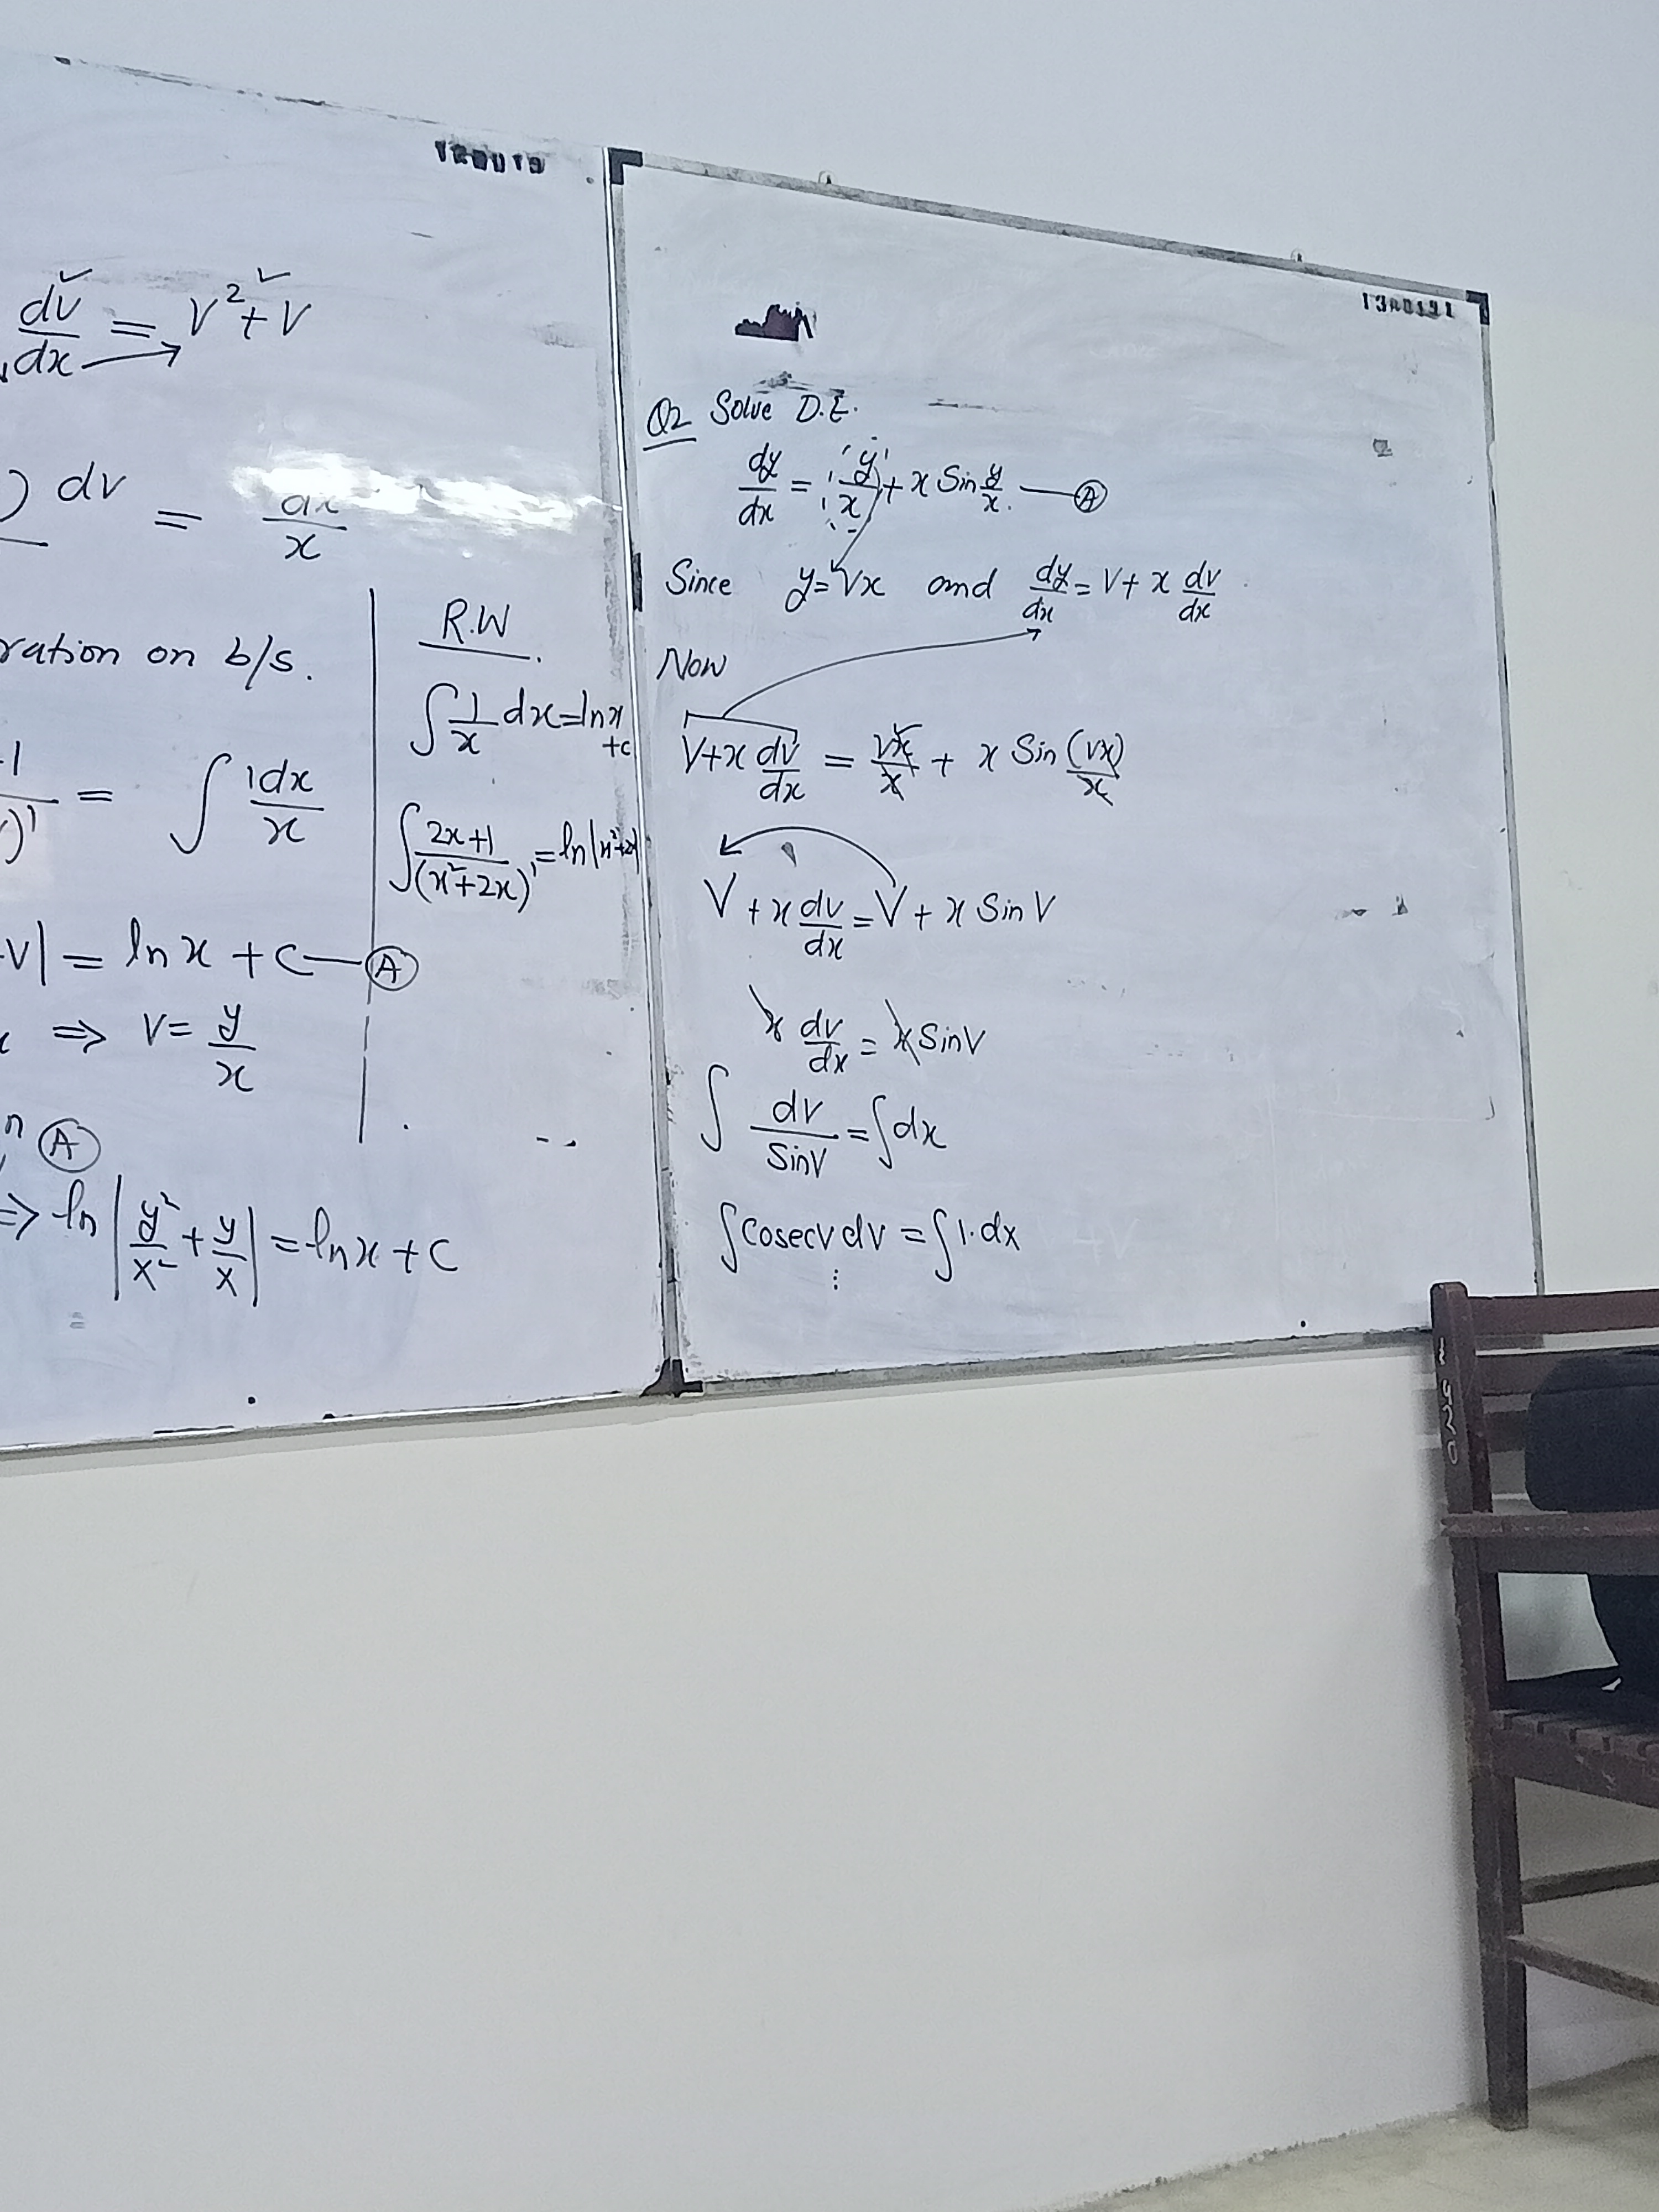 120019
dv/dx = V² + V
) dv = dx/x
ration on b/s.
-1/( )' = ∫ 1dx/x
V| = ln x + C — (A)
⇒ V = y/x
n (A)
⇒ ln |y²/x² + y/x| = ln x + C
R.W
∫ 1/x dx = ln x + c
∫ (2x+1)/(x²+2x)' = ln |x²+2x|
Q2 Solve D.E.
dy/dx = (y/x) + x Sin y/x. — (A)
Since y = Vx and dy/dx = V + x dv/dx
Now
V + x dv/dx = Vx/x + x Sin (Vx)/x
V + x dv/dx = V + x Sin V
x dv/dx = x Sin V
∫ dv/Sin V = ∫ dx
∫ Cosec V dv = ∫ 1. dx